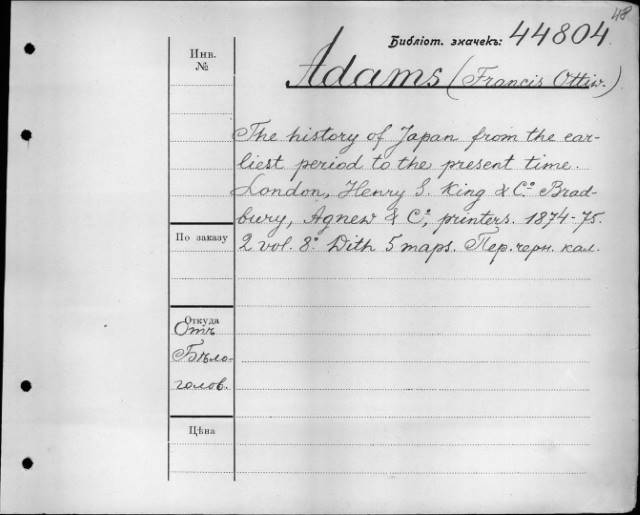 48
Библіот. значекъ: 44804
Инв.
№
Adams (Francis Ottiw.)
The history of Japan from the ear-
liest period to the present time.
London, Henry S. King & Cº. Brad-
bury, Agnew & Cº, printers. 1874-75.
2 vol. 8º. Dith 5 maps. Пер. черн. кал.
По заказу
Откуда
Отъ
Бѣло-
голов.
Цѣна